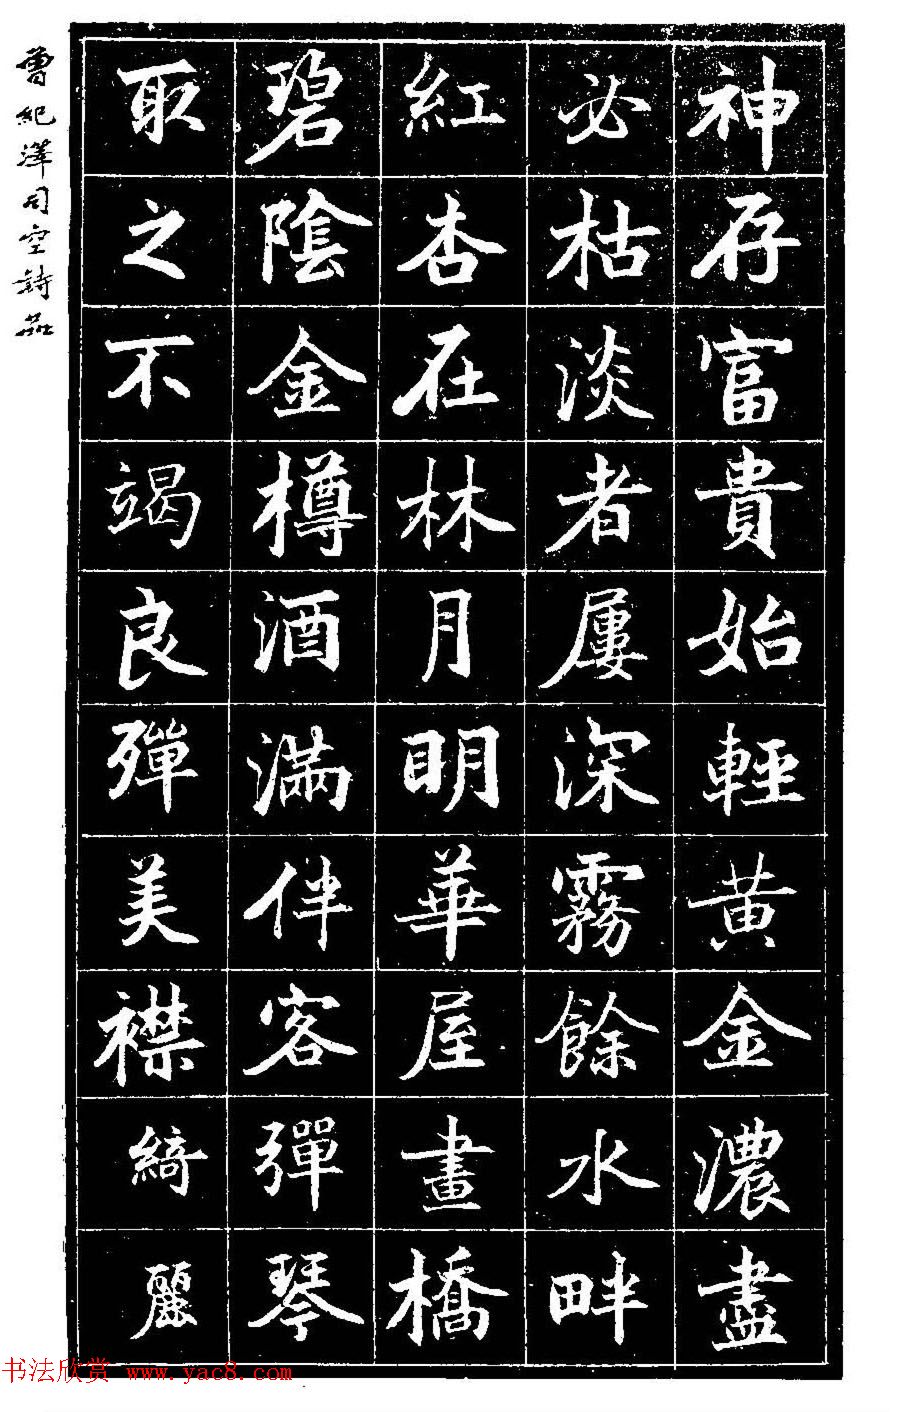 神存富貴始輕黄金濃盡
必枯淡者屢深霧餘水畔
紅杏在林月明華屋畫橋
碧陰金樽酒滿伴客彈琴
取之不竭良殫美襟綺麗
曾紀澤司空詩品
书法欣赏 www.yac8.com